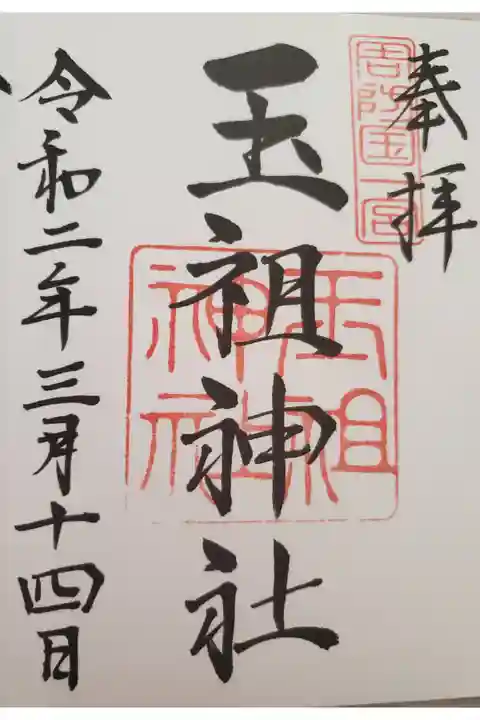 奉拝
周防国一宮
玉祖神社
玉祖神社
令和二年三月十四日